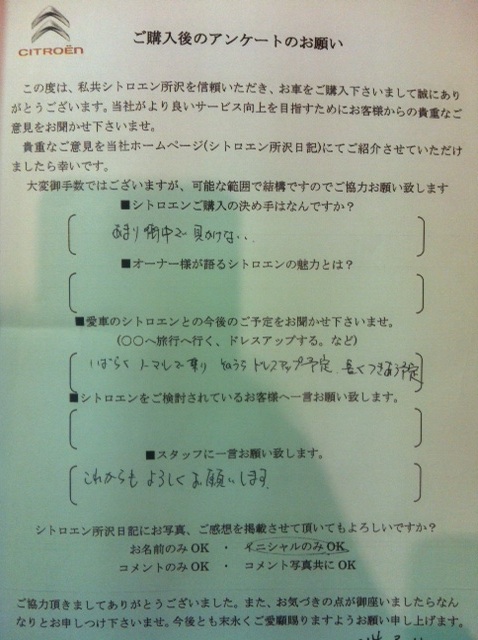 CITROËN
ご購入後のアンケートのお願い
この度は、私共シトロエン所沢を信頼いただき、お車をご購入下さいまして誠にあり
がとうございます。当社がより良いサービス向上を目指すためにお客様からの貴重なご
意見をお聞かせ下さいませ。
貴重なご意見を当社ホームページ(シトロエン所沢日記)にてご紹介させていただけ
ましたら幸いです。
大変御手数ではございますが、可能な範囲で結構ですのでご協力お願い致します
■シトロエンご購入の決め手はなんですか?
あまり街中で見かけない、、
■オーナー様が語るシトロエンの魅力とは?
■愛車のシトロエンとの今後のご予定をお聞かせ下さいませ。
(○○へ旅行へ行く、ドレスアップする。など)
しばらくノーマルで乗り そのうちドレスアップ予定、長くつきあう予定
■シトロエンをご検討されているお客様へ一言お願い致します。
■スタッフに一言お願い致します。
これからもよろしくお願いします
シトロエン所沢日記にお写真、ご感想を掲載させて頂いてもよろしいですか?
お名前のみ OK ・ イニシャルのみ OK
コメントのみ OK ・ コメント写真共に OK
ご協力頂きましてありがとうございました。また、お気づきの点が御座いましたらなん
なりとお申しつけ下さいませ。今後とも末永くご愛顧賜りますようお願い申し上げます。